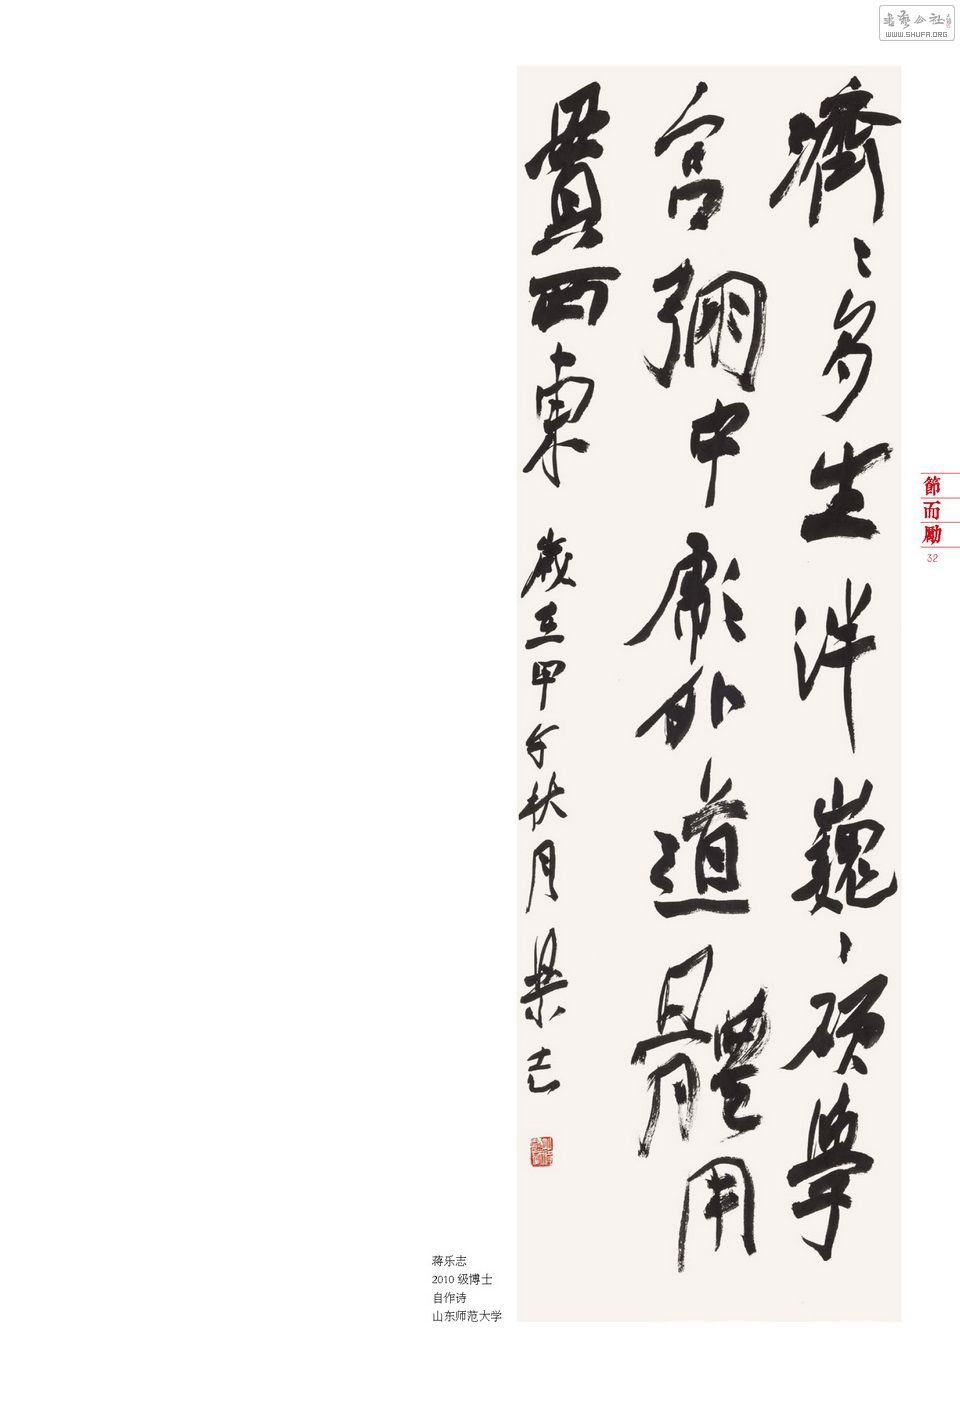 書藝公社
WWW.SHUFA.ORG
濟〻多生泮巍〻碩學
宮弸中彪外道體用
貫西東 歲在甲午秋月樂志
節而勵
32
蒋乐志
2010 级博士
自作诗
山东师范大学